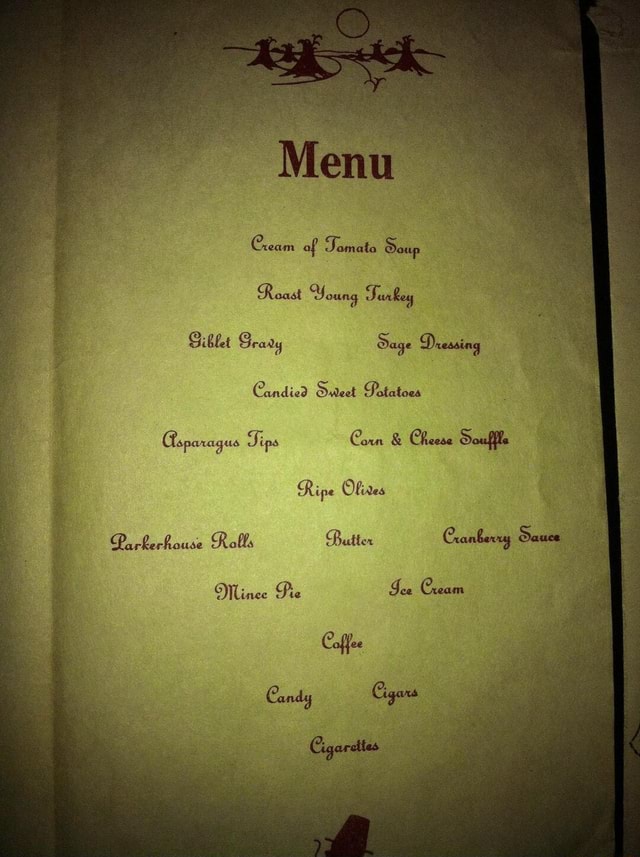 Menu
Cream of Tomato Soup
Roast Young Turkey
Giblet Gravy Sage Dressing
Candied Sweet Potatoes
Asparagus Tips Corn & Cheese Souffle
Ripe Olives
Parkerhouse Rolls Butter Cranberry Sauce
Mince Pie Ice Cream
Coffee
Candy Cigars
Cigarettes